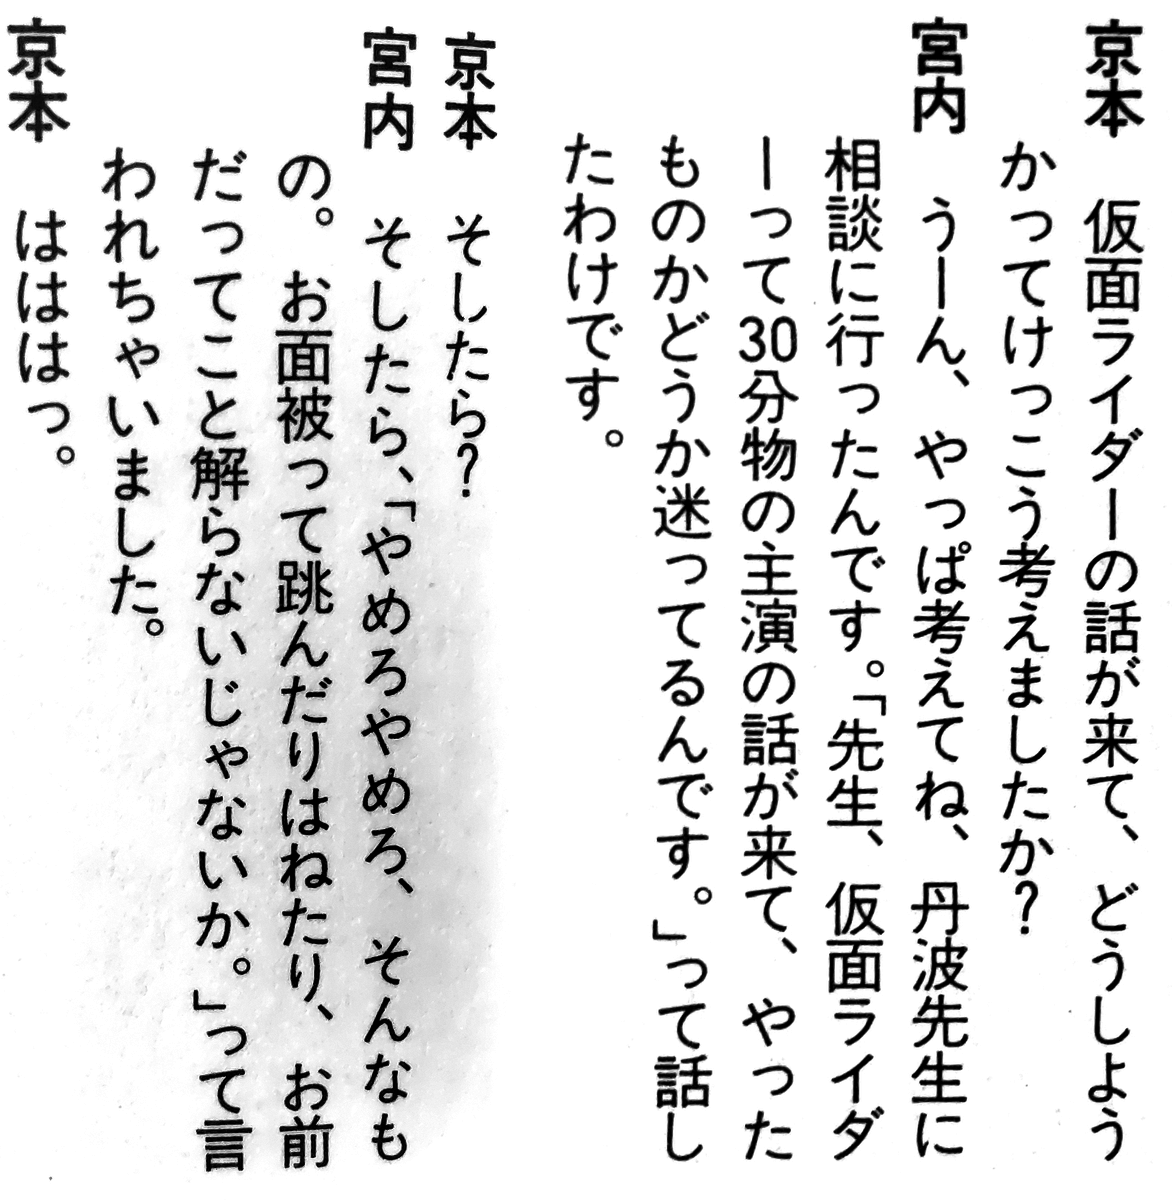 京本　仮面ライダーの話が来て、どうしよう
かってけっこう考えましたか？
宮内　うーん、やっぱ考えてね、丹波先生に
相談に行ったんです。「先生、仮面ライダ
ーって30分物の主演の話が来て、やった
ものかどうか迷ってるんです。」って話し
たわけです。
京本　そしたら？
宮内　そしたら、「やめろやめろ、そんなも
の。お面被って跳んだりはねたり、お前
だってこと解らないじゃないか。」って言
われちゃいました。
京本　はははっ。